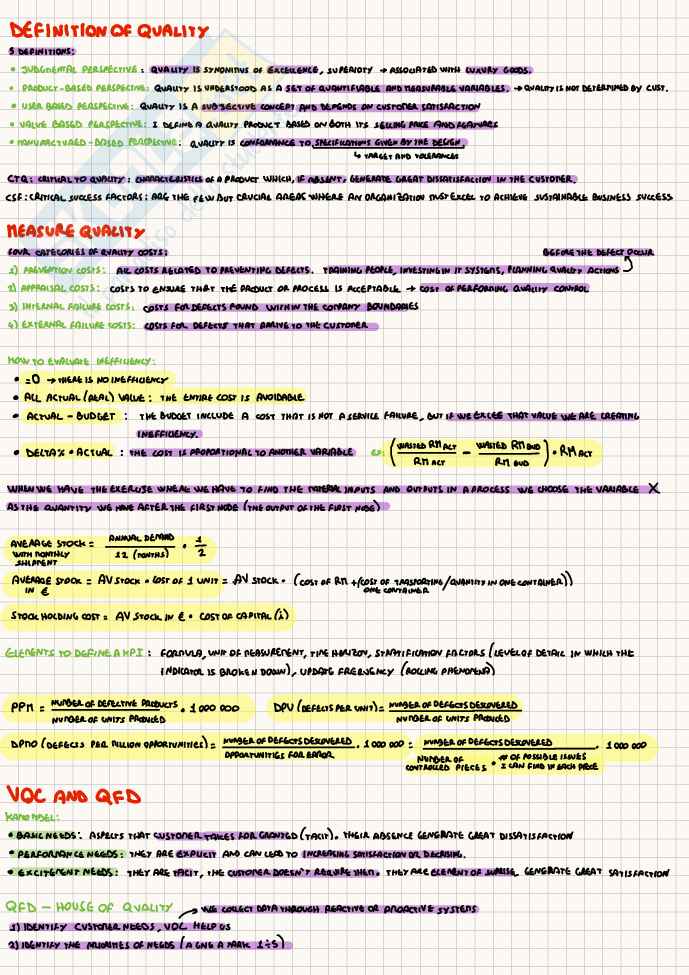 DEFINITION OF QUALITY
5 DEFINITIONS:
• JUDGMENTAL PERSPECTIVE: QUALITY IS SYNONITUS OF EXCELLENCE, SUPERIOTY → ASSOCIATED WITH LUXURY GOODS.
• PRODUCT-BASED PERSPECTIVE: QUALITY IS UNDERSTOOD AS A SET OF QUANTIFIABLE AND MEASURABLE VARIABLES. → QUALITY IS NOT DETERMINED BY CUST.
• USER BASED PERSPECTIVE: QUALITY IS A SUBJECTIVE CONCEPT AND DEPENDS ON CUSTOMER SATISFACTION
• VALUE BASED PERSPECTIVE: I DEFINE A QUALITY PRODUCT BASED ON BOTH ITS SELLING PRICE AND FEATURES
• MANUFACTURED-BASED PERSPECTIVE: QUALITY IS CONFORMANCE TO SPECIFICATIONS GIVEN BY THE DESIGN
↳ TARGET AND TOLERANCES
CTQ: CRITICAL TO QUALITY: CHARACTERISTICS OF A PRODUCT WHICH, IF ABSENT, GENERATE GREAT DISSATISFACTION IN THE CUSTOMER
CSF: CRITICAL SUCCESS FACTORS: ARE THE FEW BUT CRUCIAL AREAS WHERE AN ORGANIZATION MUST EXCEL TO ACHIEVE SUSTAINABLE BUSINESS SUCCESS
MEASURE QUALITY
FOUR CATEGORIES OF QUALITY COSTS: BEFORE THE DEFECT OCCUR
1) PREVENTION COSTS: ALL COSTS RELATED TO PREVENTING DEFECTS. TRAINING PEOPLE, INVESTING IN IT SYSTEMS, PLANNING QUALITY ACTIONS
2) APPRAISAL COSTS: COSTS TO ENSURE THAT THE PRODUCT OR PROCESS IS ACCEPTABLE → COST OF PERFORMING QUALITY CONTROL
3) INTERNAL FAILURE COSTS: COSTS FOR DEFECTS FOUND WITHIN THE COMPANY BOUNDARIES
4) EXTERNAL FAILURE COSTS: COSTS FOR DEFECTS THAT ARRIVE TO THE CUSTOMER
HOW TO EVALUATE INEFFICIENCY:
• =0 → THERE IS NO INEFFICIENCY
• ALL ACTUAL (REAL) VALUE: THE ENTIRE COST IS AVOIDABLE
• ACTUAL - BUDGET: THE BUDGET INCLUDE A COST THAT IS NOT A SERVICE FAILURE, BUT IF WE EXCEE THAT VALUE WE ARE CREATING
INEFFICIENCY.
• DELTA% • ACTUAL: THE COST IS PROPORTIONAL TO ANOTHER VARIABLE ES: (WASTED RM ACT / RM ACT - WASTED RM BUD / RM BUD) • RM ACT
WHEN WE HAVE THE EXERCISE WHERE WE HAVE TO FIND THE MATERIAL INPUTS AND OUTPUTS IN A PROCESS WE CHOOSE THE VARIABLE X
AS THE QUANTITY WE HAVE AFTER THE FIRST NODE (THE OUTPUT OF THE FIRST NODE)
AVERAGE STOCK = ANNUAL DEMAND / 12 (MONTHS) • 1/2
WITH MONTHLY
SHIPMENT
AVERAGE STOCK = AV STOCK • COST OF 1 UNIT = AV STOCK • (COST OF RM + (COST OF TRASPORTING / QUANTITY IN ONE CONTAINER))
IN € ONE CONTAINER
STOCK HOLDING COST = AV STOCK IN € • COST OF CAPITAL (i)
ELEMENTS TO DEFINE A KPI: FORMULA, UNIT OF MEASUREMENT, TIME HORIZON, STRATIFICATION FACTORS (LEVEL OF DETAIL IN WHICH THE
INDICATOR IS BROKEN DOWN), UPDATE FREQUENCY (ROLLING PHENOMENA)
PPM = NUMBER OF DEFECTIVE PRODUCTS / NUMBER OF UNITS PRODUCED • 1 000 000 DPU (DEFECTS PER UNIT) = NUMBER OF DEFECTS DESCOVERED / NUMBER OF UNITS PRODUCED
DPMO (DEFECTS PER MILLION OPPORTUNITIES) = NUMBER OF DEFECTS DESCOVERED / OPPORTUNITIES FOR ERROR • 1 000 000 = NUMBER OF DEFECTS DESCOVERED / NUMBER OF CONTROLLED PIECES • # OF POSSIBLE ISSUES I CAN FIND IN EACH PIECE • 1 000 000
VOC AND QFD
KANO MODEL:
• BASIC NEEDS: ASPECTS THAT CUSTOMER TAKES FOR GRANTED (TACIT). THEIR ABSENCE GENERATE GREAT DISSATISFACTION
• PERFORMANCE NEEDS: THEY ARE EXPLICIT AND CAN LEAD TO INCREASING SATISFACTION OR DECRISING.
• EXCITEMENT NEEDS: THEY ARE TACIT, THE CUSTOMER DOESN'T REQUIRE THEM. THEY ARE ELEMENT OF SURPRISE. GENERATE GREAT SATISFACTION
QFD - HOUSE OF QUALITY → WE COLLECT DATA THROUGH REACTIVE OR PROACTIVE SYSTEMS
1) IDENTIFY CUSTOMER NEEDS, VOC HELP US
2) IDENTIFY THE PRIORITIES OF NEEDS (A GIVE A MARK 1÷5)